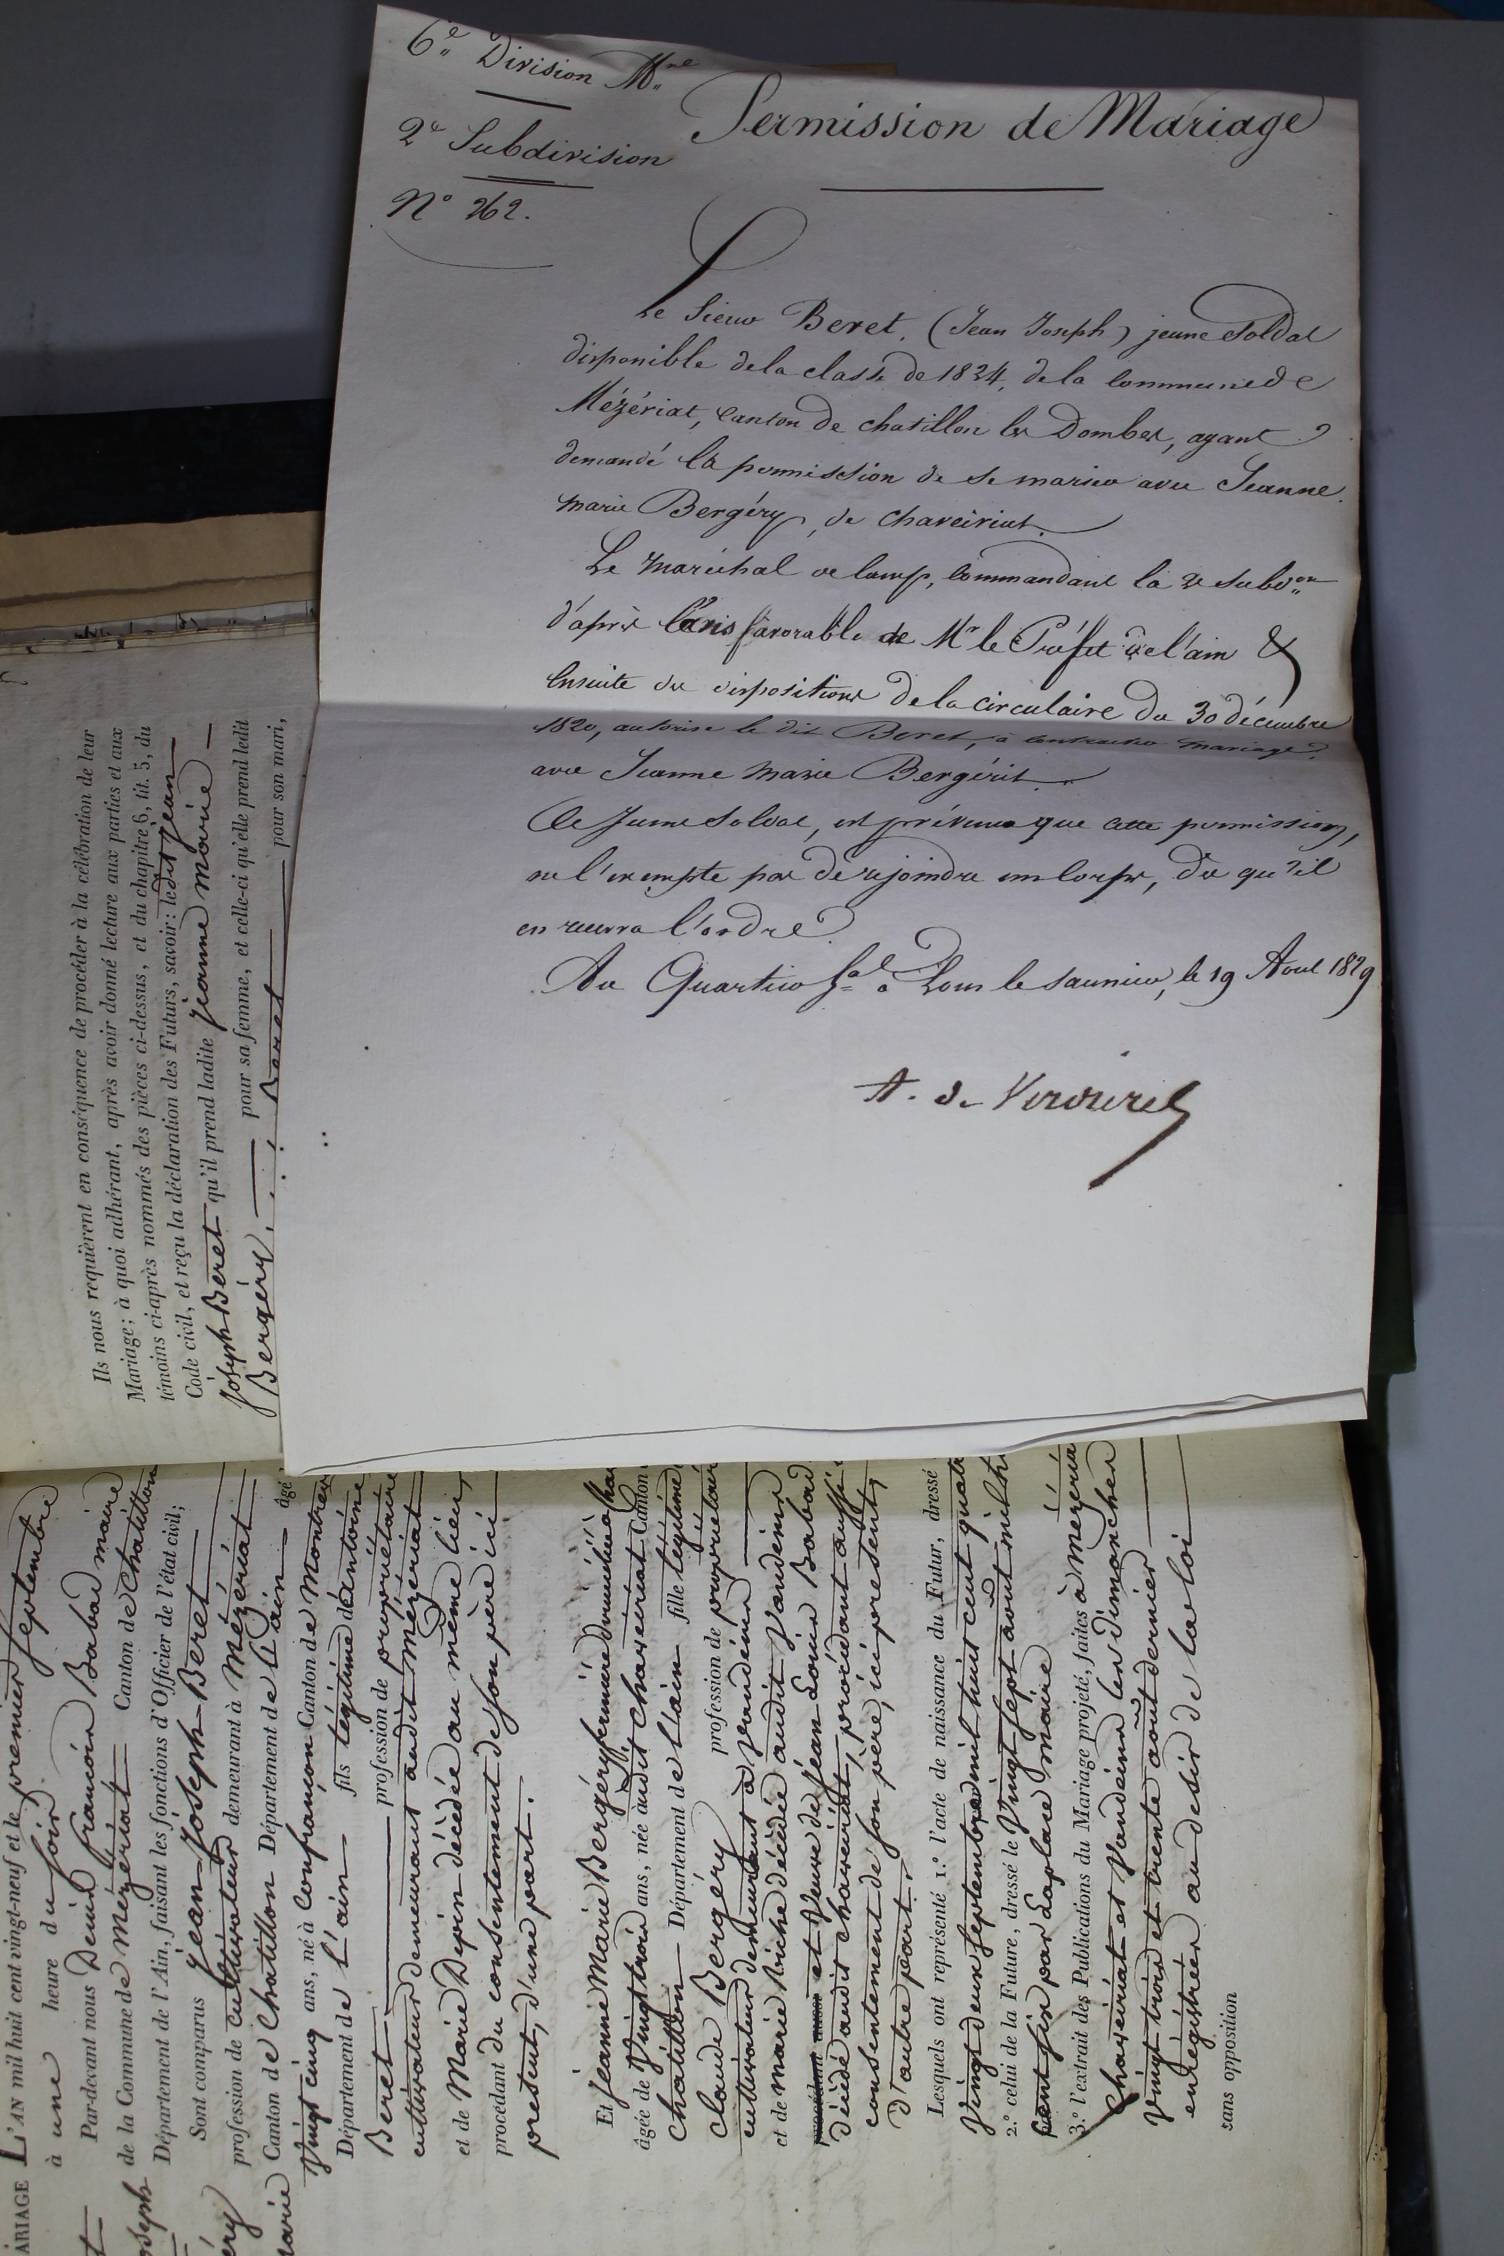 6e Division Mne
2e Subdivision
N° 262.
Permission de Mariage
Le Sieur Beret, (Jean Joseph) jeune Soldat
disponible de la classe de 1824, de la Commune de
Mézériat, Canton de Chatillon les Dombes, ayant
demandé la permission de se marier avec Jeanne
Marie Bergéry, de Chaveiriat.
Le Maréchal de Camp, Commandant la 2e Subdon
d'après l'avis favorable de Mr le Préfet de l'ain &
Ensuite des dispositions de la circulaire du 30 décembre
1820, autorise le dit Beret, à contracter mariage
avec Jeanne Marie Bergérit.
Ce Jeune Soldat, est prévenu que cette permission,
ne l'exempte pas de rejoindre un Corps, dès qu'il
en recevra l'ordre.
Au Quartier Gal à Lons le Saunier, le 19 Aout 1829
A. de
Ils nous requièrent en conséquence de procéder à la célébration de leur
Mariage; à quoi adhérant, après avoir donné lecture aux parties et aux
témoins ci-après nommés des pièces ci-dessus, et du chapitre 6, tit. 5, du
Code civil, et reçu la déclaration des Futurs, savoir: ledit jean
joseph Beret qu'il prend ladite jeanne marie
Bergéry. pour sa femme, et celle-ci qu'elle prend ledit
Beret pour son mari,
ARIAGE
oseph
éry
Marie
L'AN mil huit cent vingt-neuf et le premier septembre
à une heure du soir.
Par-devant nous Denis françois Babad maire
de la Commune de Mézériat Canton de Chatillon
Département de l'Ain, faisant les fonctions d'Officier de l'état civil;
Sont comparus jean-joseph Beret
profession de cultivateur demeurant à Mézériat
Canton de Chatillon Département de l'ain âgé
Vingt cinq ans, né à Confrançon Canton de Montrev
Département de l'ain fils légitime d'antoine
Beret profession de propriétaire
cultivateur demeurant audit Mézériat
et de Marie Depin décédée au même lieu,
procédant du consentement de son père ici
présent, d'une part.
Et jeanne Marie Bergéry fermière domiciliée à Cha
âgée de Vingt trois ans, née audit chaveiriat Canton
Chatillon Département de l'ain fille légitime
Claude Bergéry profession de propriétair
cultivateur demeurant à Vandeins
et de marie Riche décédée audit Vandeins
procédant aussi et Veuve de jean Louis Babad
décédé audit chaveiriat, procédant aussi
consentement de son père, ici présent,
d'autre part.
Lesquels ont représenté 1.° l'acte de naissance du Futur, dressé
Vingt deux septembre mil huit cent quatr
2.° celui de la Future, dressé le Vingt sept août mil h
cent six par Laplace maire
3.° l'extrait des Publications du Mariage projeté, faites à mezeria
Chaveiriat et Vandeins les dimanches
Vingt trois et trente août dernier
enregistrées au desir de la loi
sans opposition